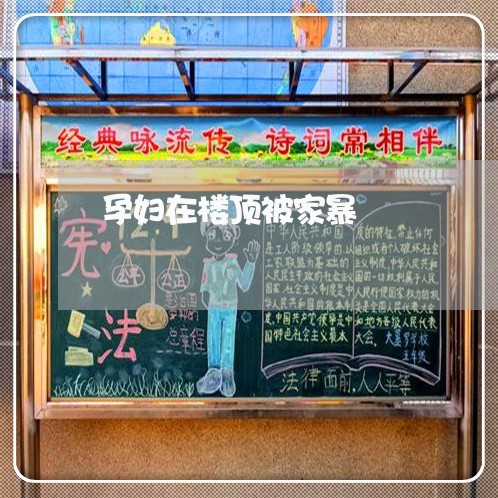 经典咏流传 诗词常相伴
孕妇在楼顶被家暴
12.4
宪
法
公平
公正
总章程
中华人民共和国
是工人阶级领导的,以
工农联盟为基础的
人民民主专政的社会主义
国家,社会主义制度是中
华人民共和国的根本制
度,中国共产党领导是中
国特色社会主义最本
质的特征,禁止任何
组织或者个人破坏社会
主义制度,中华人民共和
国的一切权利属于人民,
人民行使国家权力的机
关是全国人民代表大会
和地方各级人民代表
大会.
五年级
法律面前,人人平等